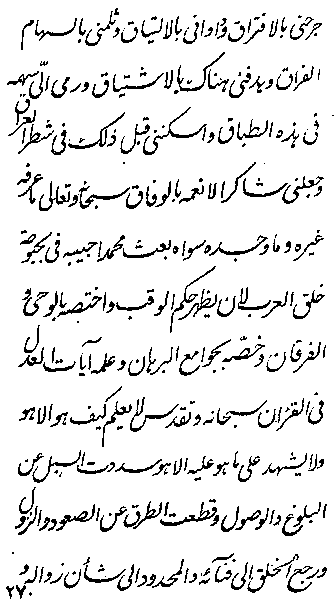 جرحنی بالافتراق و داوانی بالالتیاق و ثلمنی بالسهام
الفراق و یدفنی هنالک بالاشتیاق و رمی الی سهمه
فی هذه الطباق و اسکننی قبل ذلک فی شطر العراق
و جعلنی شاکرا لانعمه بالوفاق سبحانه و تعالی ما عرفه
غیره و ما وحده سواه بعث محمدا حبیبه فی بحبوحة
خلق العرب لان یظهر حکم الوقب و اختصه بالوحی و
الفرقان و خصّه بجوامع البرهان و علمه آیات العدل
فی القرآن سبحانه و تقدس لا یعلم کیف هو الا هو
و لا یشهد علی ما هو علیه الا هو سددت السبل عن
البلوغ و الوصول و قطعت الطرق عن الصعود و النزول
و رجع الخلق الی فنآئه و المحدود الی شأن زواله و
۲۷